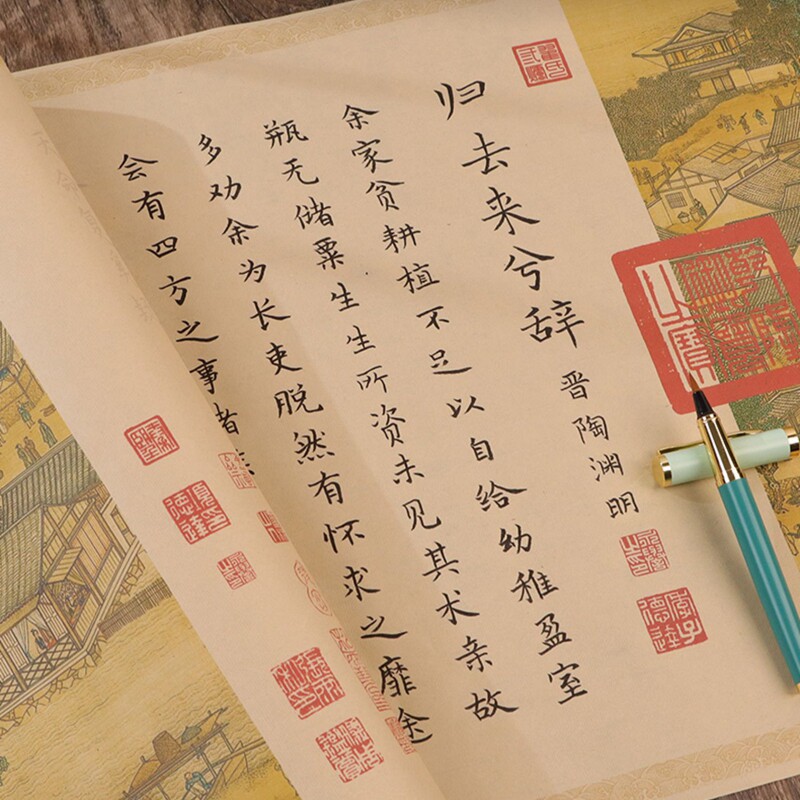 归去来兮辞 晋陶渊明
余家贫耕植不足以自给幼稚盈室
瓶无储粟生生所资未见其术亲故
多劝余为长吏脱然有怀求之靡途
会有四方之事